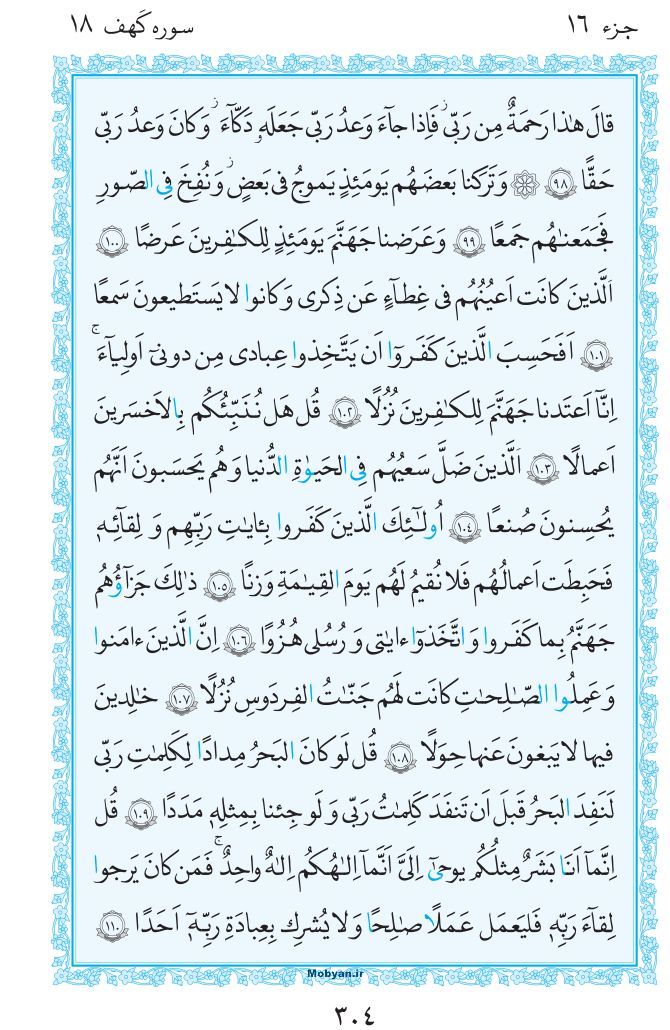 جزء ١٦
سوره کهف ١٨
قالَ هٰذا رَحمَةٌ مِن رَبّى ۖ فَاِذا جآءَ وَعدُ رَبّى جَعَلَهو دَكّآءَ ۖ وَكانَ وَعدُ رَبّى
حَقًّا ﴿٩٨﴾ ۞ وَتَرَكنا بَعضَهُم يَومَئِذٍ يَموجُ فى بَعضٍ ۖ وَنُفِخَ فِى الصّورِ
فَجَمَعنٰهُم جَمعًا ﴿٩٩﴾ وَعَرَضنا جَهَنَّمَ يَومَئِذٍ لِلكـٰفِرينَ عَرضًا ﴿١٠٠﴾
اَلَّذينَ كانَت اَعيُنُهُم فى غِطـآءٍ عَن ذِكرى وَكانوا لا يَستَطيعونَ سَمعًا
﴿١٠١﴾ اَفَحَسِبَ الَّذينَ كَفَروٓا اَن يَتَّخِذوا عِبادى مِن دونىٓ اَولِيآءَ ۚ
اِنّآ اَعتَدنا جَهَنَّمَ لِلكـٰفِرينَ نُزُلًا ﴿١٠٢﴾ قُل هَل نُنَبِّئُكُم بِالاَخسَرينَ
اَعمالًا ﴿١٠٣﴾ اَلَّذينَ ضَلَّ سَعيُهُم فِى الحَيوٰةِ الدُّنيا وَهُم يَحسَبونَ اَنَّهُم
يُحسِنونَ صُنعًا ﴿١٠٤﴾ اُولـٰٓئِكَ الَّذينَ كَفَروا بِـٔايـٰتِ رَبِّهِم وَ لِقآئِه
فَحَبِطَت اَعمالُهُم فَلا نُقيمُ لَهُم يَومَ القِيـٰمَةِ وَزنًا ﴿١٠٥﴾ ذٰلِكَ جَزآؤُهُم
جَهَنَّمُ بِما كَفَروا وَاتَّخَذوٓا ءايـٰتى وَ رُسُلى هُزُوًا ﴿١٠٦﴾ اِنَّ الَّذينَ ءامَنوا
وَ عَمِلُوا الصّـٰلِحـٰتِ كانَت لَهُم جَنّـٰتُ الفِردَوسِ نُزُلًا ﴿١٠٧﴾ خـٰلِدينَ
فيها لا يَبغونَ عَنها حِوَلًا ﴿١٠٨﴾ قُل لَو كانَ البَحرُ مِدادًا لِكَلِمـٰتِ رَبّى
لَنَفِدَ البَحرُ قَبلَ اَن تَنفَدَ كَلِمـٰتُ رَبّى وَ لَو جِئنا بِمِثلِه مَدَدًا ﴿١٠٩﴾ قُل
اِنَّمآ اَنَا بَشَرٌ مِثلُكُم يوحىٰٓ اِلَىَّ اَنَّمآ اِلـٰهُكُم اِلـٰهٌ واحِدٌ ۖ فَمَن كانَ يَرجوا
لِقآءَ رَبِّه فَليَعمَل عَمَلًا صـٰلِحًا وَ لا يُشرِك بِعِبادَةِ رَبِّهٓ اَحَدًا ﴿١١٠﴾
Mobyan.ir
٣٠٤